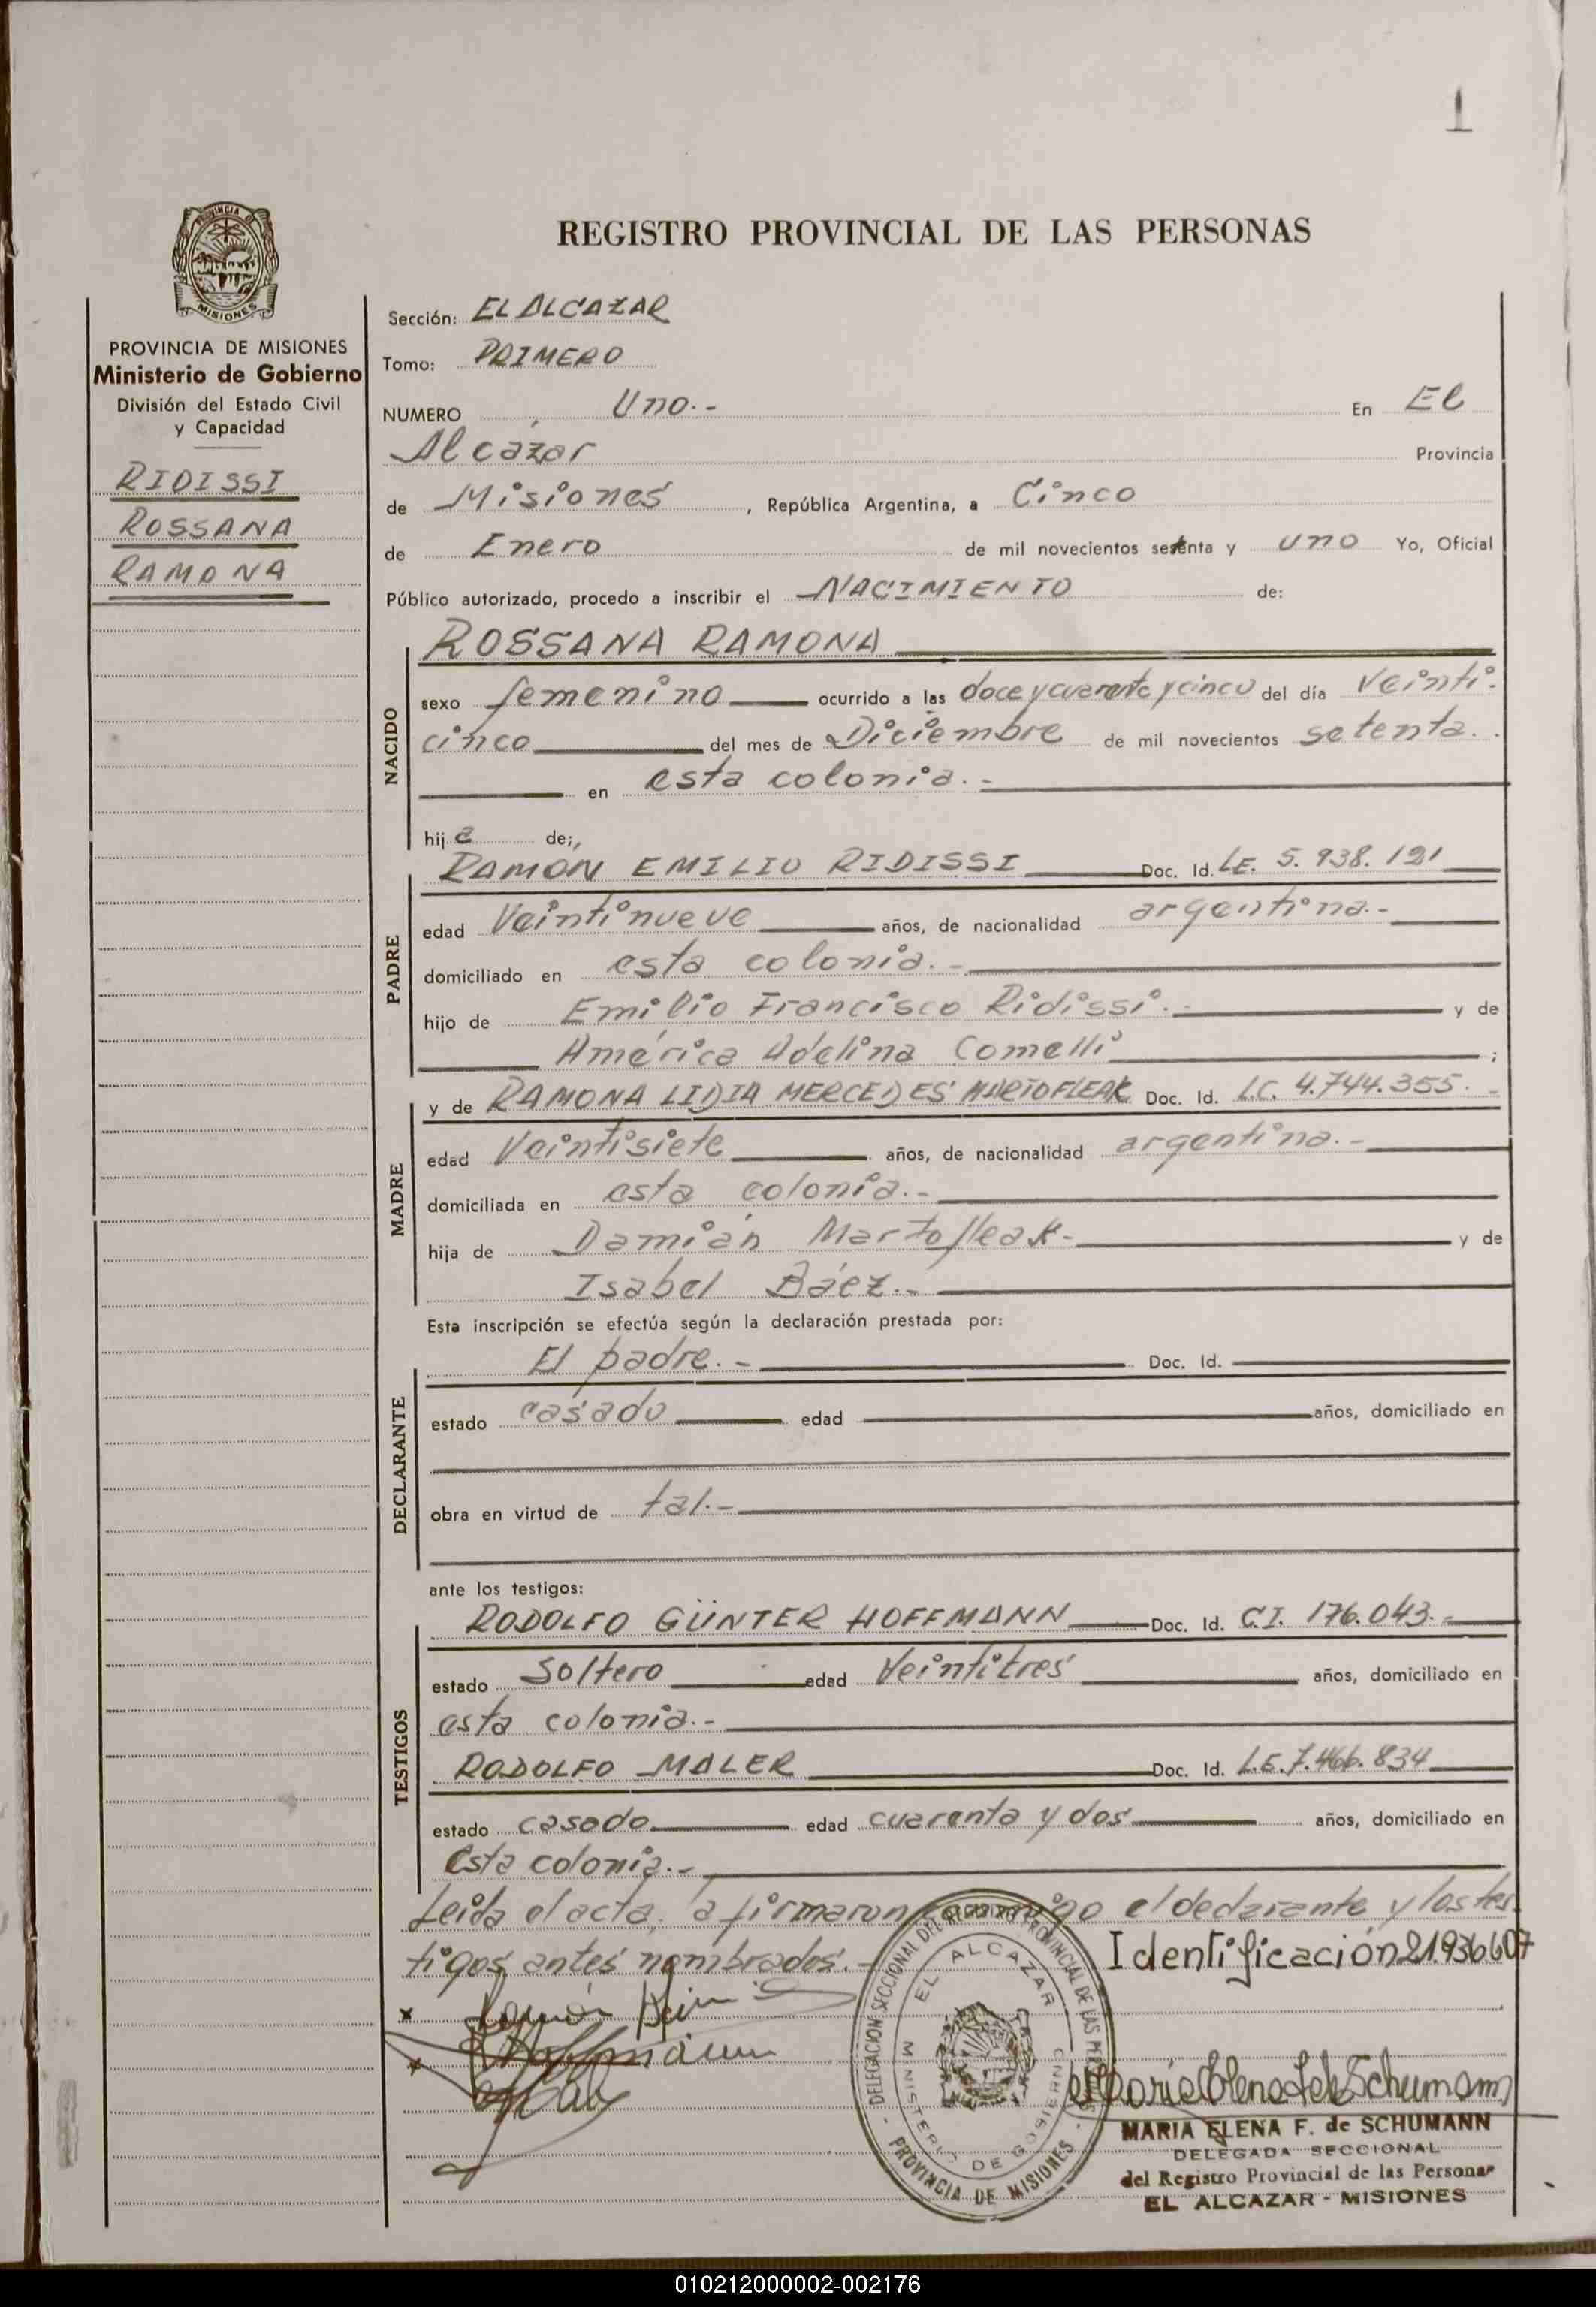 1
PROVINCIA DE
MISIONES
REGISTRO PROVINCIAL DE LAS PERSONAS
PROVINCIA DE MISIONES
Ministerio de Gobierno
División del Estado Civil
y Capacidad
RIDISSI
ROSSANA
RAMONA
Sección: EL ALCAZAR
Tomo: PRIMERO
NUMERO Uno.- En El
Alcázar Provincia
de Misiones, República Argentina, a Cinco
de Enero de mil novecientos setenta y uno Yo, Oficial
Público autorizado, procedo a inscribir el NACIMIENTO de:
NACIDO
ROSSANA RAMONA
sexo femenino ocurrido a las doce y cuarenta y cinco del día Veinti-
cinco del mes de Diciembre de mil novecientos setenta.
en esta colonia.-
hija de;
PADRE
RAMON EMILIO RIDISSI Doc. Id. LE. 5.938.121
edad Veintinueve años, de nacionalidad argentina.-
domiciliado en esta colonia.-
hijo de Emilio Francisco Ridissi.- y de
América Adelina Comelli;
MADRE
y de RAMONA LIDIA MERCEDES MARTOFLEAK Doc. Id. LC. 4.744.355.-
edad Veintisiete años, de nacionalidad argentina.-
domiciliada en esta colonia.-
hija de Damián Martofleak- y de
Isabel Báez.-
Esta inscripción se efectúa según la declaración prestada por:
DECLARANTE
El padre.- Doc. Id.
estado casado edad años, domiciliado en
obra en virtud de tal.-
ante los testigos:
TESTIGOS
RODOLFO GÜNTER HOFFMANN Doc. Id. C.I. 176.043.-
estado Soltero edad Veintitres años, domiciliado en
esta colonia.-
RODOLFO MALER Doc. Id. L.E. 7.466.834
estado casado edad cuarenta y dos años, domiciliado en
Esta colonia.-
Leida el acta, la firmaron conmigo el declarante y los tes-
tigos antes nombrados.-
Identificación 21.936.607
DELEGACION SECCIONAL DEL REGISTRO PROVINCIAL DE LAS PERSONAS
EL ALCAZAR
MINISTERIO DE GOBIERNO
- PROVINCIA DE MISIONES -
Hoffmann
MARIA ELENA F. de SCHUMANN
DELEGADA SECCIONAL
del Registro Provincial de las Personas
EL ALCAZAR - MISIONES
010212000002-002176